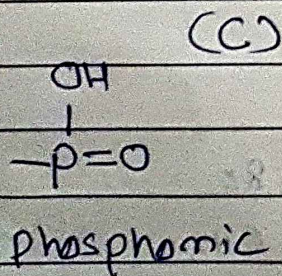 (C)
OH
-P=O
phosphomic